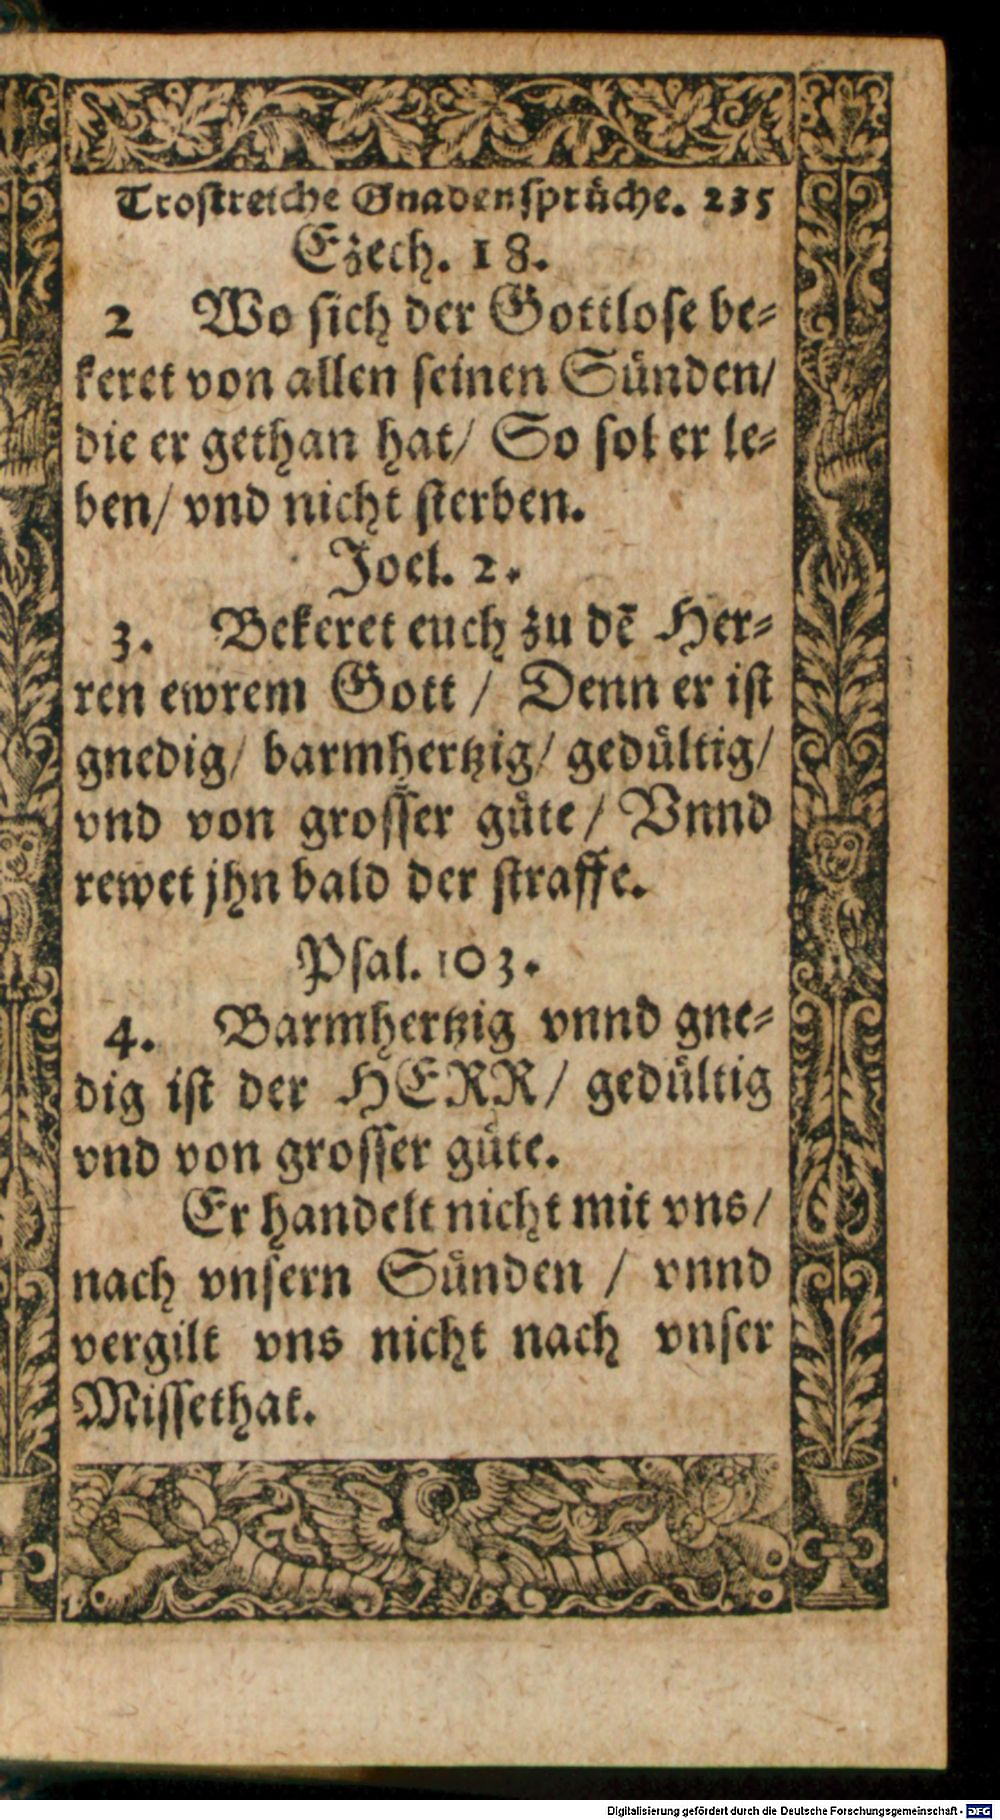 Trostreiche Gnadensprüche. 235
Ezech. 18.
2 Wo sich der Gottlose be-
keret von allen seinen Sünden/
die er gethan hat/ So sol er le-
ben/ vnd nicht sterben.
Joel. 2.
3. Bekeret euch zu dē Her-
ren ewrem Gott / Denn er ist
gnedig/ barmhertzig/ gedültig/
vnd von grosser güte / Vnnd
rewet jhn bald der straffe.
Psal. 103.
4. Barmhertzig vnnd gne-
dig ist der HERR/ gedültig
vnd von grosser güte.
Er handelt nicht mit vns/
nach vnsern Sünden / vnnd
vergilt vns nicht nach vnser
Missethat.
Digitalisierung gefördert durch die Deutsche Forschungsgemeinschaft - DFG